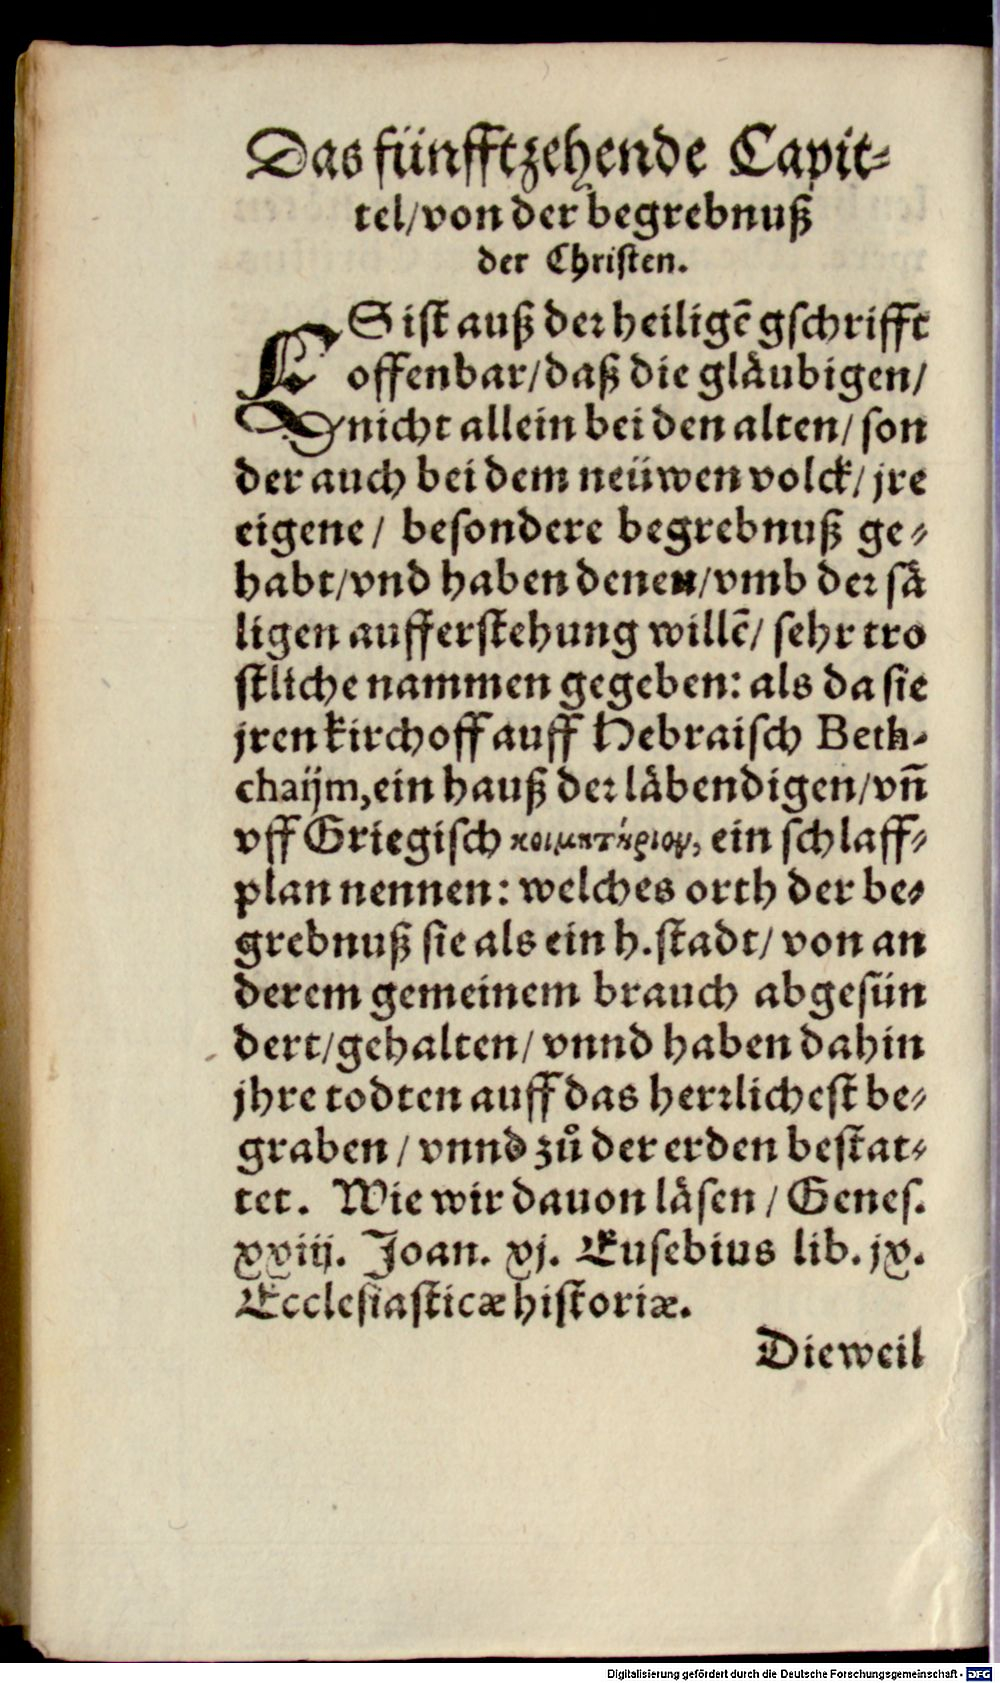 Das fünfftzehende Capit⸗
tel/von der begrebnuß
der Christen.
ES ist auß der heiligē gschrifft
offenbar/daß die glaͤubigen/
nicht allein bei den alten/ son
der auch bei dem neüwen volck/ jre
eigene/ besondere begrebnuß ge⸗
habt/vnd haben denen/vmb der saͤ
ligen aufferstehung willē/ sehr tro
stliche nammen gegeben: als da sie
jren kirchoff auff Hebraisch Beth-
chaijm, ein hauß der laͤbendigen/vn̄
vff Griegisch κοιμητήριον, ein schlaff⸗
plan nennen: welches orth der be⸗
grebnuß sie als ein h. stadt/ von an
derem gemeinem brauch abgesün
dert/gehalten/ vnnd haben dahin
jhre todten auff das herrlichest be⸗
graben / vnnd zů der erden bestat⸗
tet. Wie wir dauon laͤsen / Genes.
xxiij. Joan. xj. Eusebius lib. jx.
Ecclesiasticæ historiæ.
Dieweil
Digitalisierung gefördert durch die Deutsche Forschungsgemeinschaft - DFG